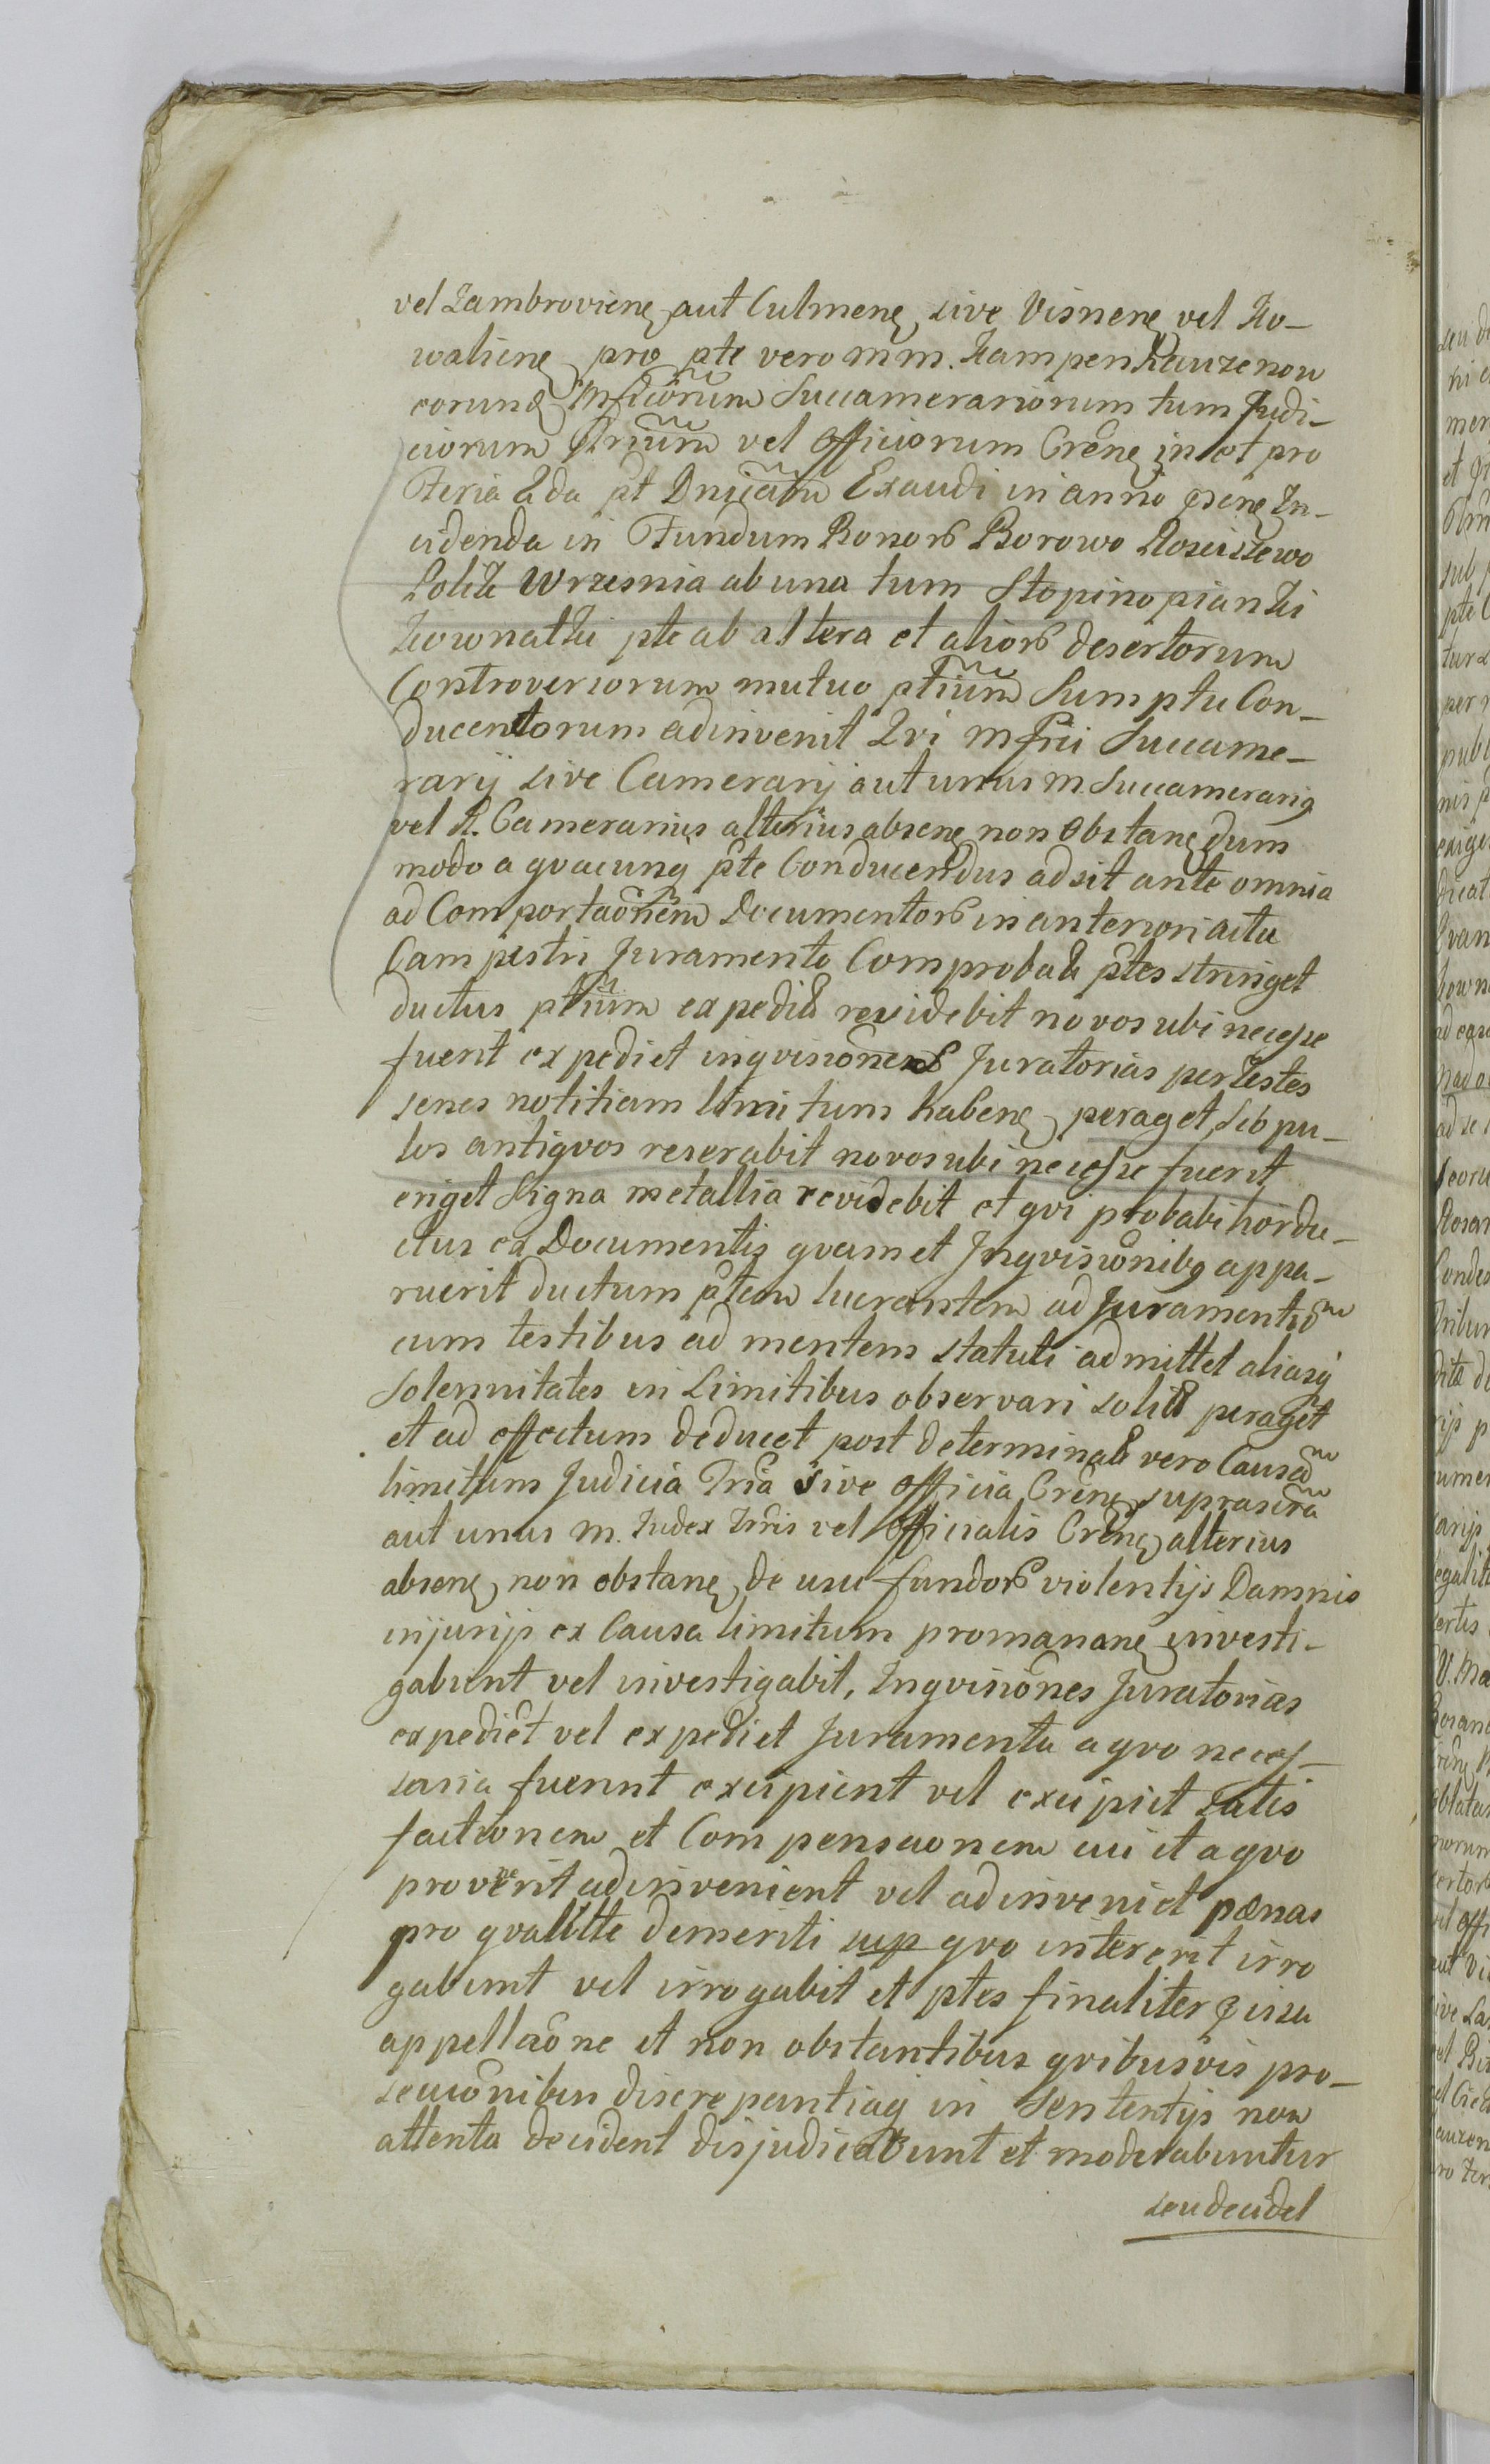 vel Zambroviens aut Culmens sive Visnens vel Ko-
waliens pro pte vero mm. Kampenhauzenow
eorund Mficorum Succamerariorum tum Judi-
ciorum Trium vel Officiorum Crens in et pro
Feria 2da pt Dnicam Exaudi in anno psens In-
cidenda in Fundum Bonor Borowo Kosciszewo
Wrzesnia ab una tum Stopino pianki
pte ab altera et alior desertorum
Controversiorum mutuo ptium Sumptu Con-
ducentorum adinvenit Mfici Succame-
rarij sive Camerarij aut unus m. Succamerarig
vel A. Camerarius alterius absens non Obstans dum
modo a qvacunq pte Conducendus adsit ante omnia
ad Comportaonem Documentor in anteriori actu
Campestri Juramento Comprobata ptes stringet
ductus ptium expedita revidebit novos ubi necesse
fuerit expediet inqvisiones Juratorias per testes
senes notitiam limitum habens peraget, Scopu-
los antiqvos reserabit novos ubi necesse fuerit
eriget Signa metallia revidebit et qvi probabilior du-
ctus ex Documentis qvam et Jnqvisionibq appa-
ruerit ductum ptem lucrantem ad Juramentum
cum testibus ad mentem statuti admittet aliasq
Solennitates in Limitibus observari solita peraget
et ad effectum deducet post determinata vero Causam
limitum Judicia Tria sive officia Crens suprascra
aut unus m. Judex Trris vel Officialis Crens alterius
absens non obstans de usu fundor violentijs Damnis
injurijs ex Causa limitum promanans investi-
gabunt vel investigabit, Inqvisiones Juratorias
expedient vel expediet Juramenta a qvo neces-
saria fuerint excipient vel excipiet Satis
factionem et Compensaonem cui et a qvo
provenerit adinvenient vel adinveniet pænas
pro qvalitte demeriti sup qvo intererit irro
gabunt vel irrogabit et ptes finaliter
appellaone et non obstantibus qvibusvis pro-
secuonibus discrepantiaq in Sententijs non
attenta decident disjudicabunt et moderabuntur
seu decidet